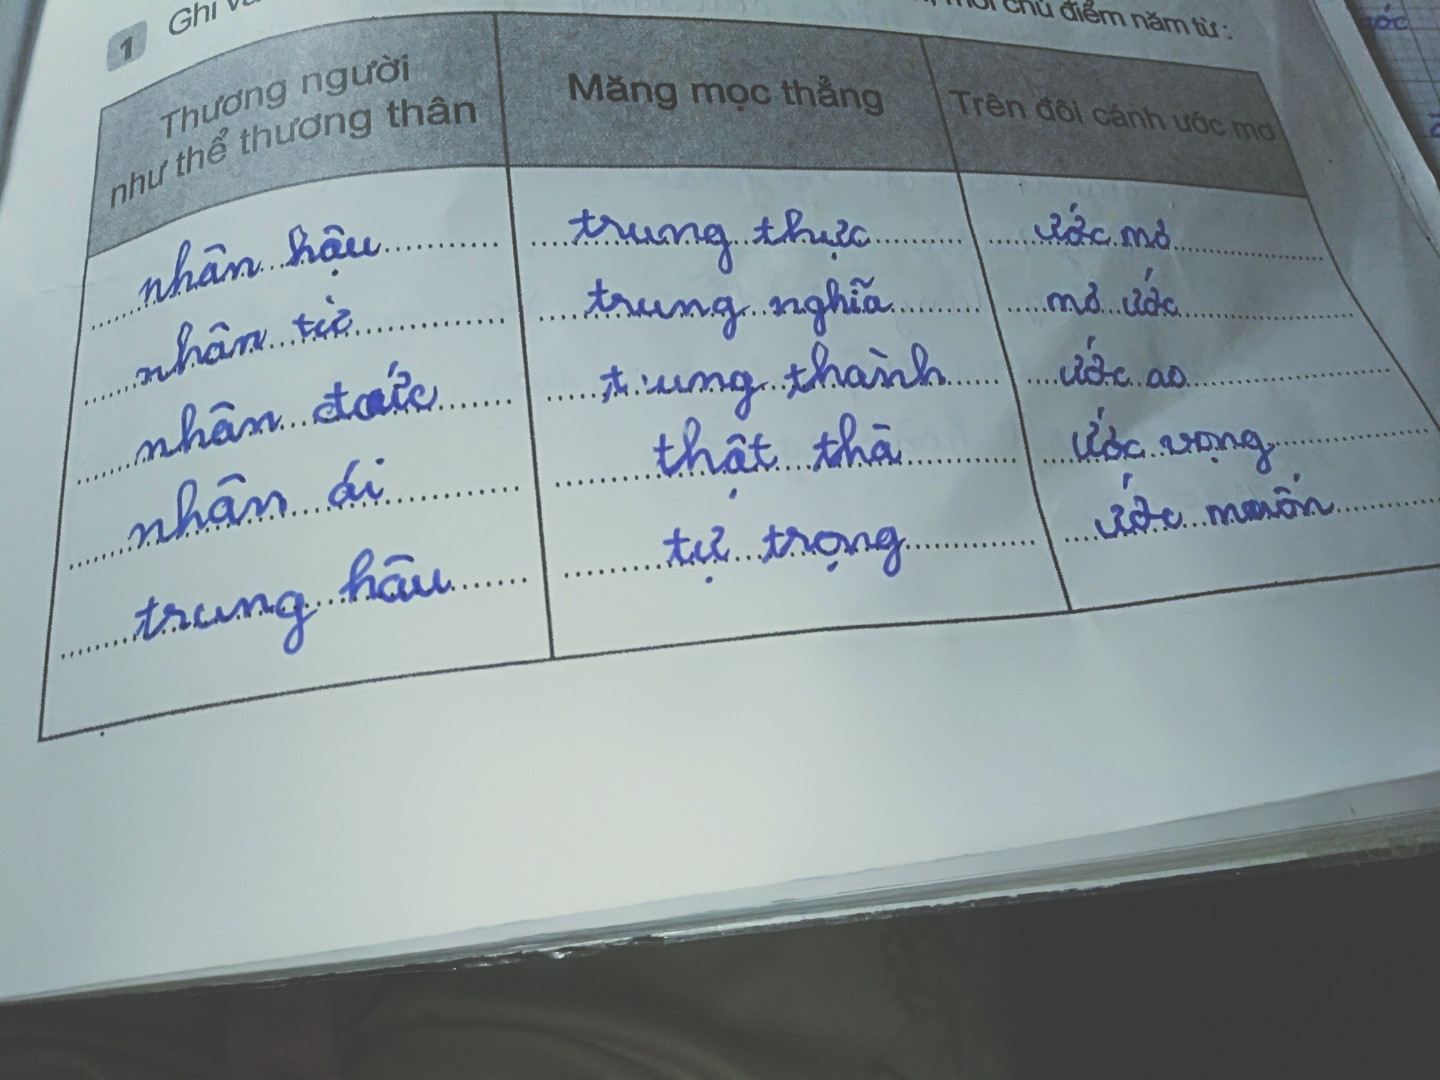 1 Ghi
mỗi chủ điểm năm từ :
Thương người
như thể thương thân
Măng mọc thẳng
Trên đôi cánh ước mơ
nhân hậu
trung thực
ước mơ
nhân từ
trung nghĩa
mơ ước
nhân đức
trung thành
ước ao
nhân ái
thật thà
ước vọng
trung hâu
tự trọng
ước muốn